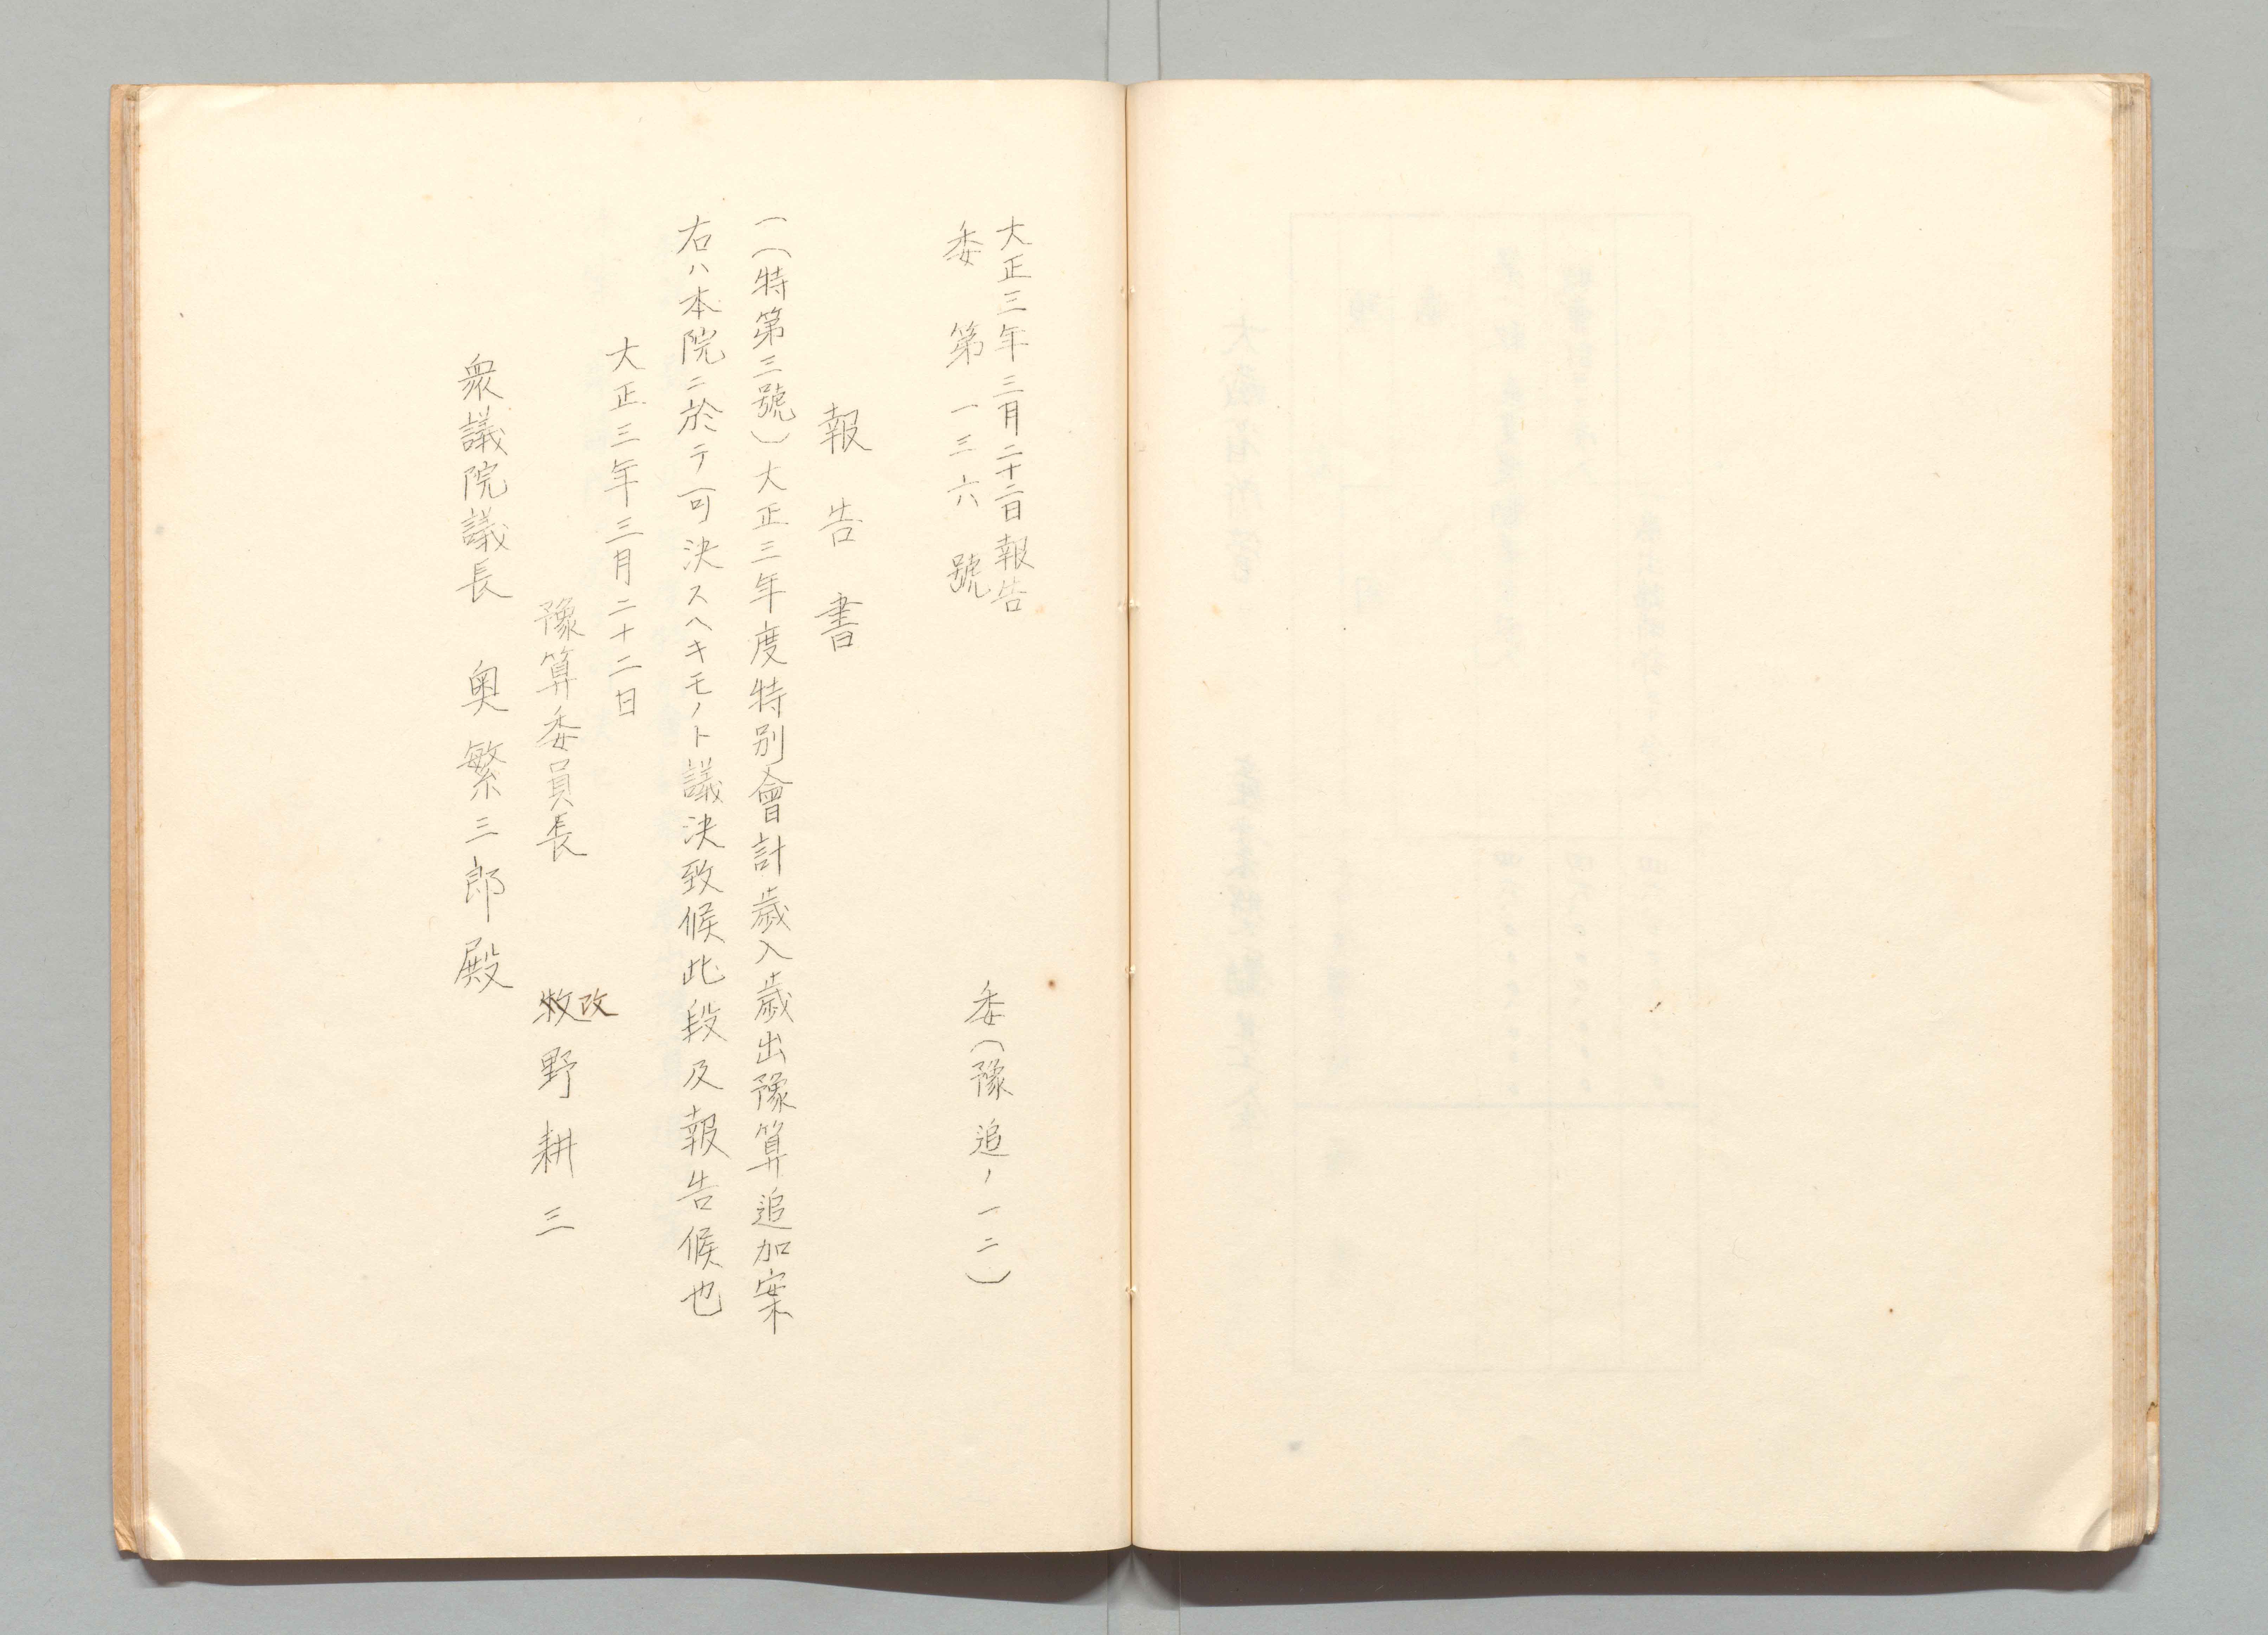 大正三年三月二十二日報告
委第一三六號
委(豫追、一二)
報告書
一(特第三號)大正三年度特別會計歲入歲出豫算追加案
右ハ本院ニ於テ可決スヘキモノト議決致候此段及報告候也
大正三年三月二十二日
豫算委員長 改野耕三
衆議院議長 奥繁三郎殿